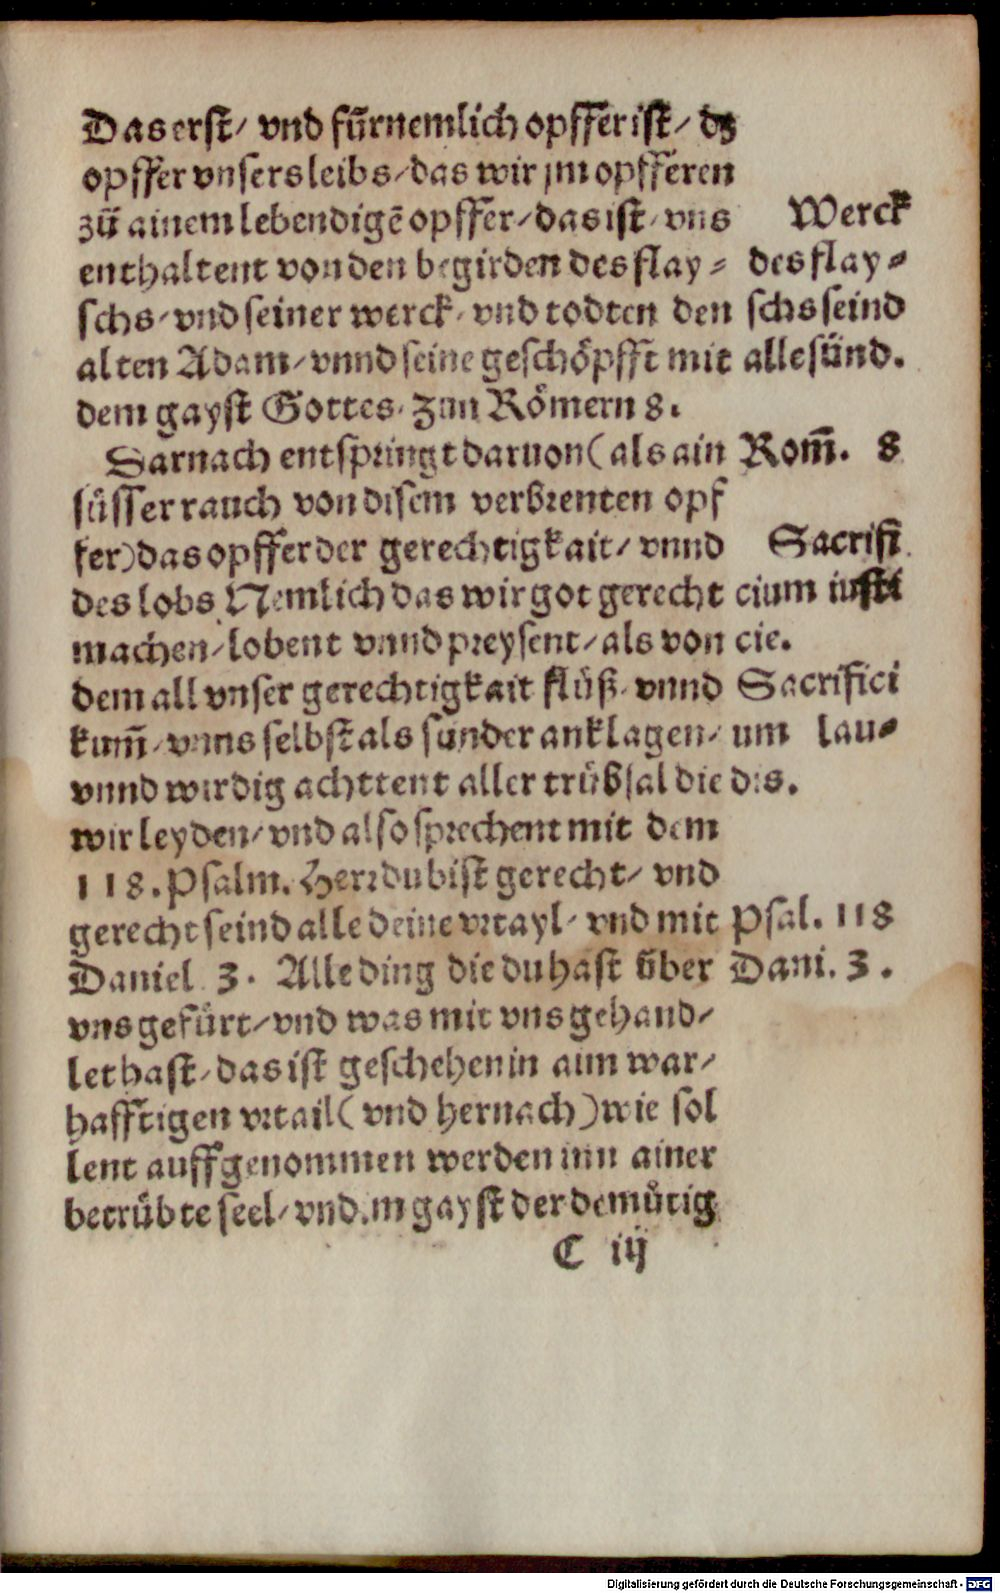 Das erst/ vnd fürnemlich opffer ist/ dz
opffer vnsers leibs/ das wir jm opfferen
zů ainem lebendigē opffer/ das ist/ vns
enthaltent von den begirden des flay-
schs/ vnd seiner werck/ vnd todten den
alten Adam/ vnnd seine geschöpfft mit
dem gayst Gottes/ zun Römern 8.
Darnach entspringt daruon (als ain
süsser rauch von disem verbrenten opf
fer) das opffer der gerechtigkait/ vnnd
des lobs Nemlich das wir got gerecht
machen/ lobent vnnd preysent/ als von
dem all vnser gerechtigkait flüß/ vnnd
kum̄/ vnns selbst als sünder anklagen/
vnnd wirdig achttent aller trübsal die
wir leyden/ vnd also sprechent mit dem
118. Psalm. Herr du bist gerecht/ vnd
gerecht seind alle deine vrtayl/ vnd mit
Daniel 3. Alle ding die du hast über
vns gefürt/ vnd was mit vns gehand/
let hast/ das ist geschehen in aim war/
hafftigen vrtail (vnd hernach) wie sol
lent auffgenommen werden inn ainer
betrübte seel/ vnd im gayst der demütig
C iij
Werck
des flay-
schs seind
alle sünd.
Rom̄. 8
Sacrifi
cium iusti
cie.
Sacrifici
um lau-
dis.
Psal. 118
Dani. 3.
Digitalisierung gefördert durch die Deutsche Forschungsgemeinschaft - DFG